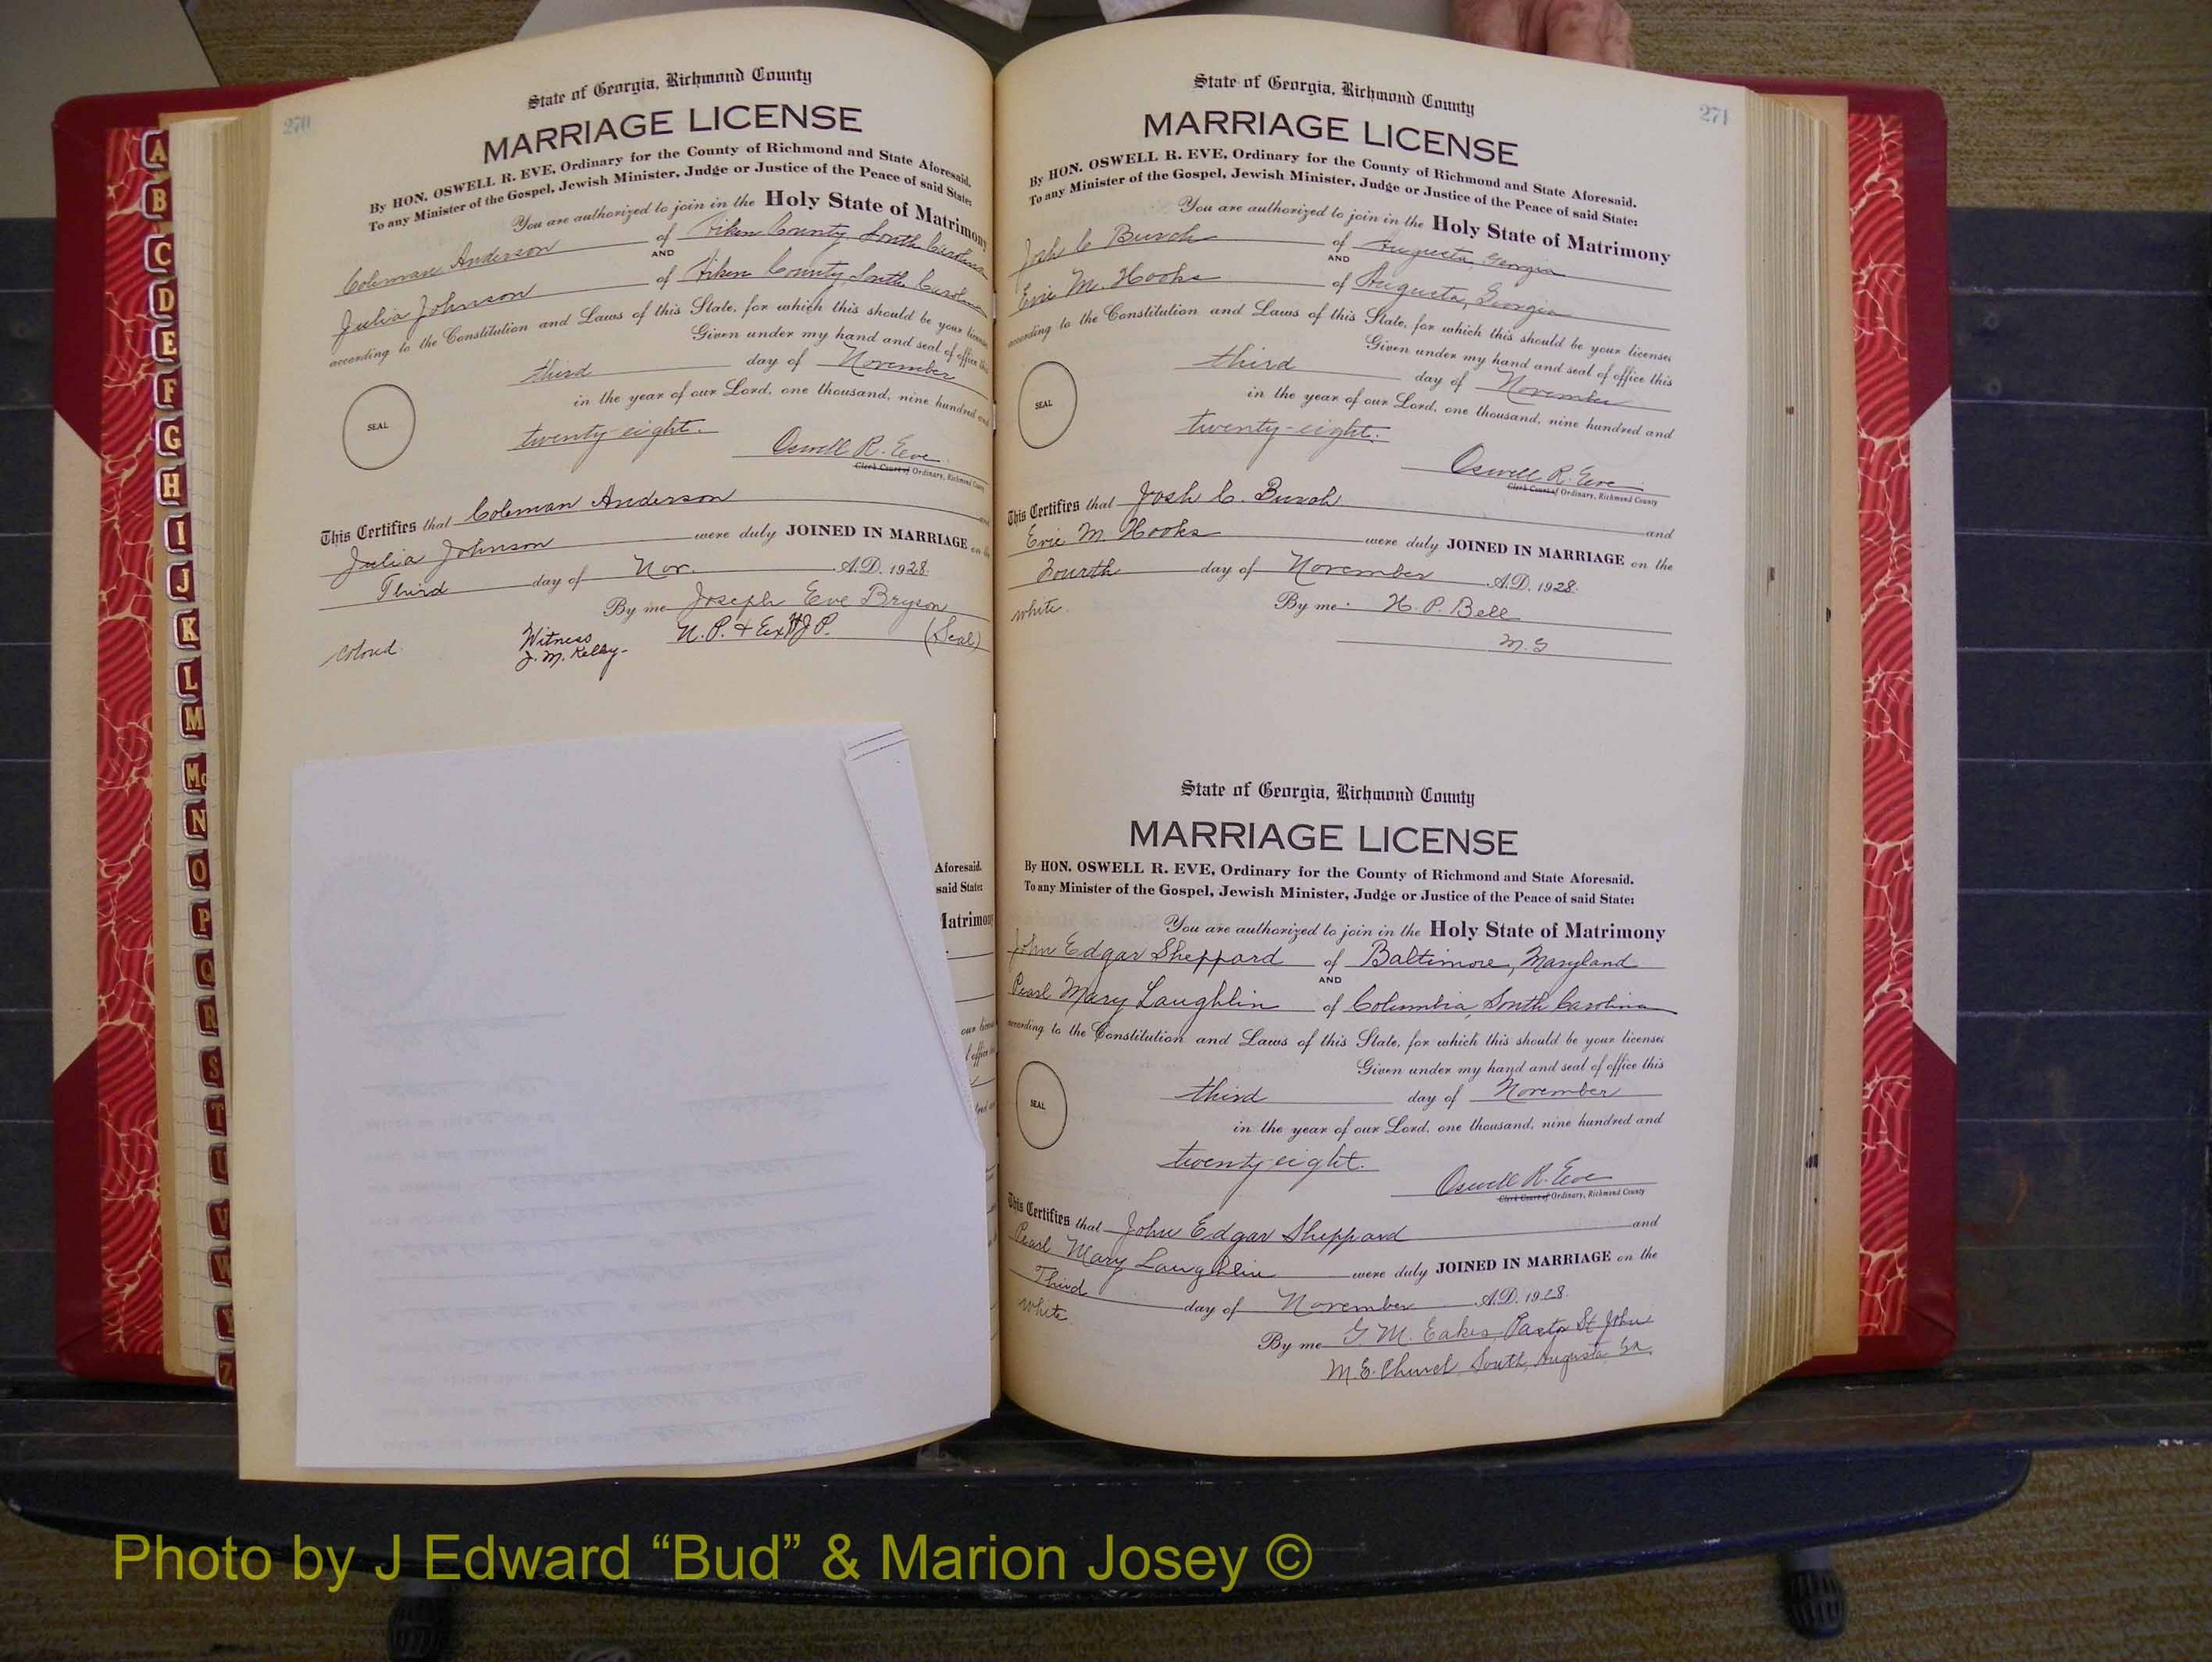 270
State of Georgia, Richmond County
MARRIAGE LICENSE
By HON. OSWELL R. EVE, Ordinary for the County of Richmond and State Aforesaid.
To any Minister of the Gospel, Jewish Minister, Judge or Justice of the Peace of said State:
You are authorized to join in the Holy State of Matrimony
Coleman Anderson of Aiken County, South Carolina
AND
Julia Johnson of Aiken County, South Carolina
according to the Constitution and Laws of this State, for which this should be your license
Given under my hand and seal of office this
third day of November
in the year of our Lord, one thousand, nine hundred and
SEAL
twenty-eight.
Oswell R. Eve
Clerk Court of Ordinary, Richmond County
This Certifies that Coleman Anderson and
Julia Johnson were duly JOINED IN MARRIAGE on the
Third day of Nov. A.D. 1928.
By me Joseph Eve Bryson
N. P. & Ex J. P. (Seal)
Witness
J. M. Kelly
colored
Aforesaid.
said State:
Matrimony
A
B
C
D
E
F
G
H
I
J
K
L
M
Mc
N
O
P
Q
R
S
T
U
V
W
Y
Z
271
State of Georgia, Richmond County
MARRIAGE LICENSE
By HON. OSWELL R. EVE, Ordinary for the County of Richmond and State Aforesaid.
To any Minister of the Gospel, Jewish Minister, Judge or Justice of the Peace of said State:
You are authorized to join in the Holy State of Matrimony
Josh C Burch of Augusta, Georgia
AND
Evie M. Hooks of Augusta, Georgia
according to the Constitution and Laws of this State, for which this should be your licenses
Given under my hand and seal of office this
third day of November
in the year of our Lord, one thousand, nine hundred and
SEAL
twenty-eight.
Oswell R. Eve
Clerk Court of Ordinary, Richmond County
This Certifies that Josh C. Burch and
Evie M. Hooks were duly JOINED IN MARRIAGE on the
Fourth day of November A.D. 1928.
white. By me H. P. Bell
M. G
State of Georgia, Richmond County
MARRIAGE LICENSE
By HON. OSWELL R. EVE, Ordinary for the County of Richmond and State Aforesaid.
To any Minister of the Gospel, Jewish Minister, Judge or Justice of the Peace of said State:
You are authorized to join in the Holy State of Matrimony
John Edgar Sheppard of Baltimore, Maryland
AND
Pearl Mary Laughlin of Columbia, South Carolina
according to the Constitution and Laws of this State, for which this should be your licenses
Given under my hand and seal of office this
third day of November
in the year of our Lord, one thousand, nine hundred and
SEAL
twenty-eight.
Oswell R. Eve
Clerk Court of Ordinary, Richmond County
This Certifies that John Edgar Sheppard and
Pearl Mary Laughlin were duly JOINED IN MARRIAGE on the
Third day of November A.D. 1928.
white. By me G. M. Eakes, Pastor St John
M. E. Church, South, Augusta, Ga.
Photo by J Edward “Bud” & Marion Josey ©